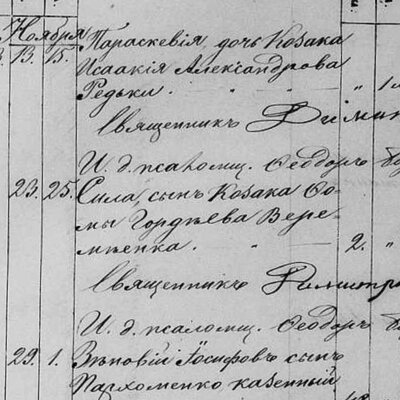 Ноября
13. 15. Параскевія, дочь Козака
Исаакія Александрова
Редьки. " " " 1
Священникъ Дими
И. д. псаломщ. Ѳеодоръ
23. 25. Сила, сынъ Козака Ѳо-
мы Гордѣева Вере-
мѣенка. " " 2. "
Священникъ Димитрі
И. д. псаломщ. Ѳеодоръ
29. 1. Іосифовъ сынъ
Пархоменко казенный